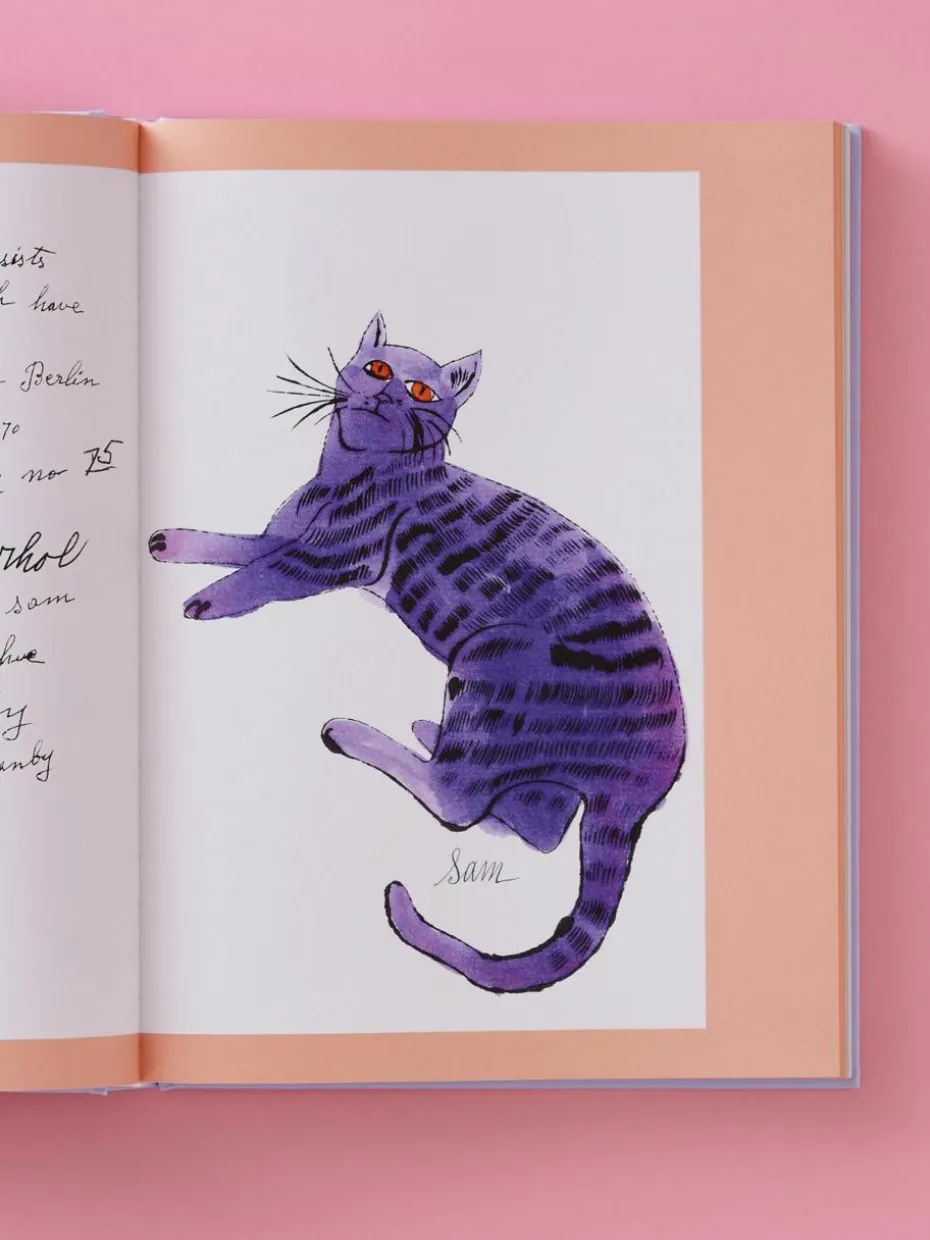 sists
h have
Berlin
70
no 75
rhol
sam
hue
y
anby
Sam